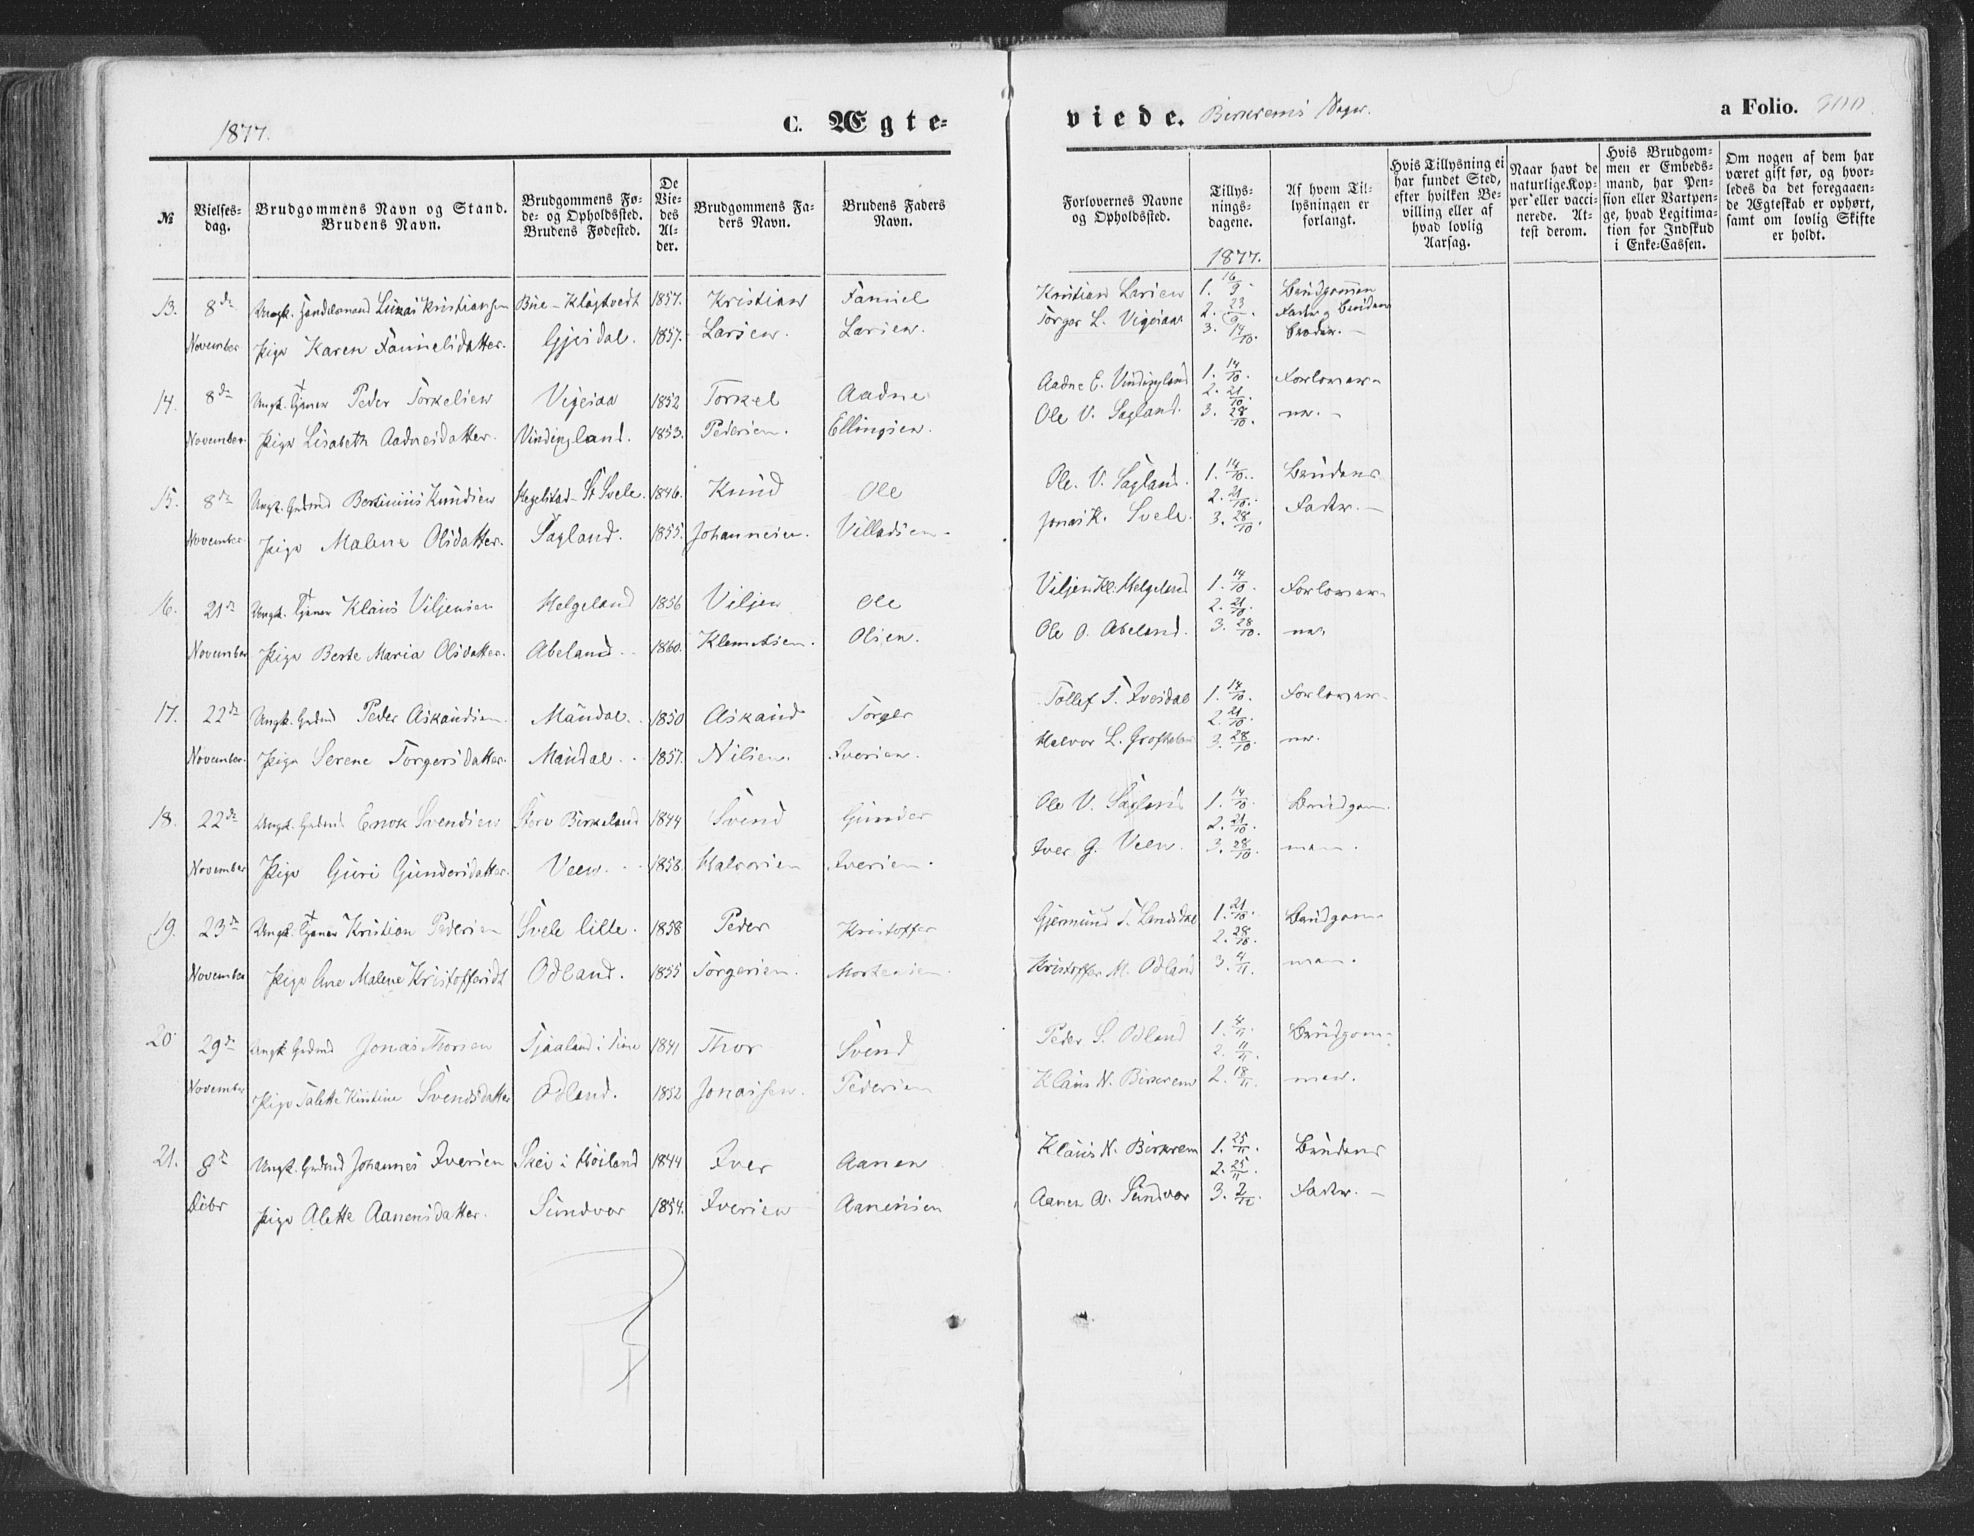 1877.
C. Ægte-
viede. Birkrems Sogn.
a Folio.
№
Vielses-dag.
Brudgommens Navn og Stand. Brudens Navn.
Brudgommens Fø-de- og Opholdssted. Brudens Fødested.
De Vie-des Al-der.
Brudgommens Fa-ders Navn.
Brudens Faders Navn.
Forlovernes Navne og Opholdssted.
Tillys-nings-dagene.
Af hvem Til-lysningen er forlangt.
Hvis Tillysning ei har fundet Sted, efter hvilken Be-villing eller af hvad lovlig Aarsag.
Naar havt de naturlige Kop-per eller vacci-nerede. At-test derom.
Hvis Brudgom-men er Embeds-mand, har Pen-sion eller Vartpen-ge, hvad Legitima-tion for Indskud i Enke-Cassen.
Om nogen af dem har været gift før, og hvor-ledes da det foregaaen-de Ægteskab er ophørt, samt om lovlig Skifte er holdt.
1877.
13. 8de Ungk. Handelsmand Lukas Kristiansen Bue - Kløgtvedt 1857. Kristian Samuel Kristian Larsen 1. 16/9. Brudgommen
Torger L. Vigesaa 2. 23/9. Fader og Brudens
November Pige Karen Samuelsdatter. Gjesdal. 1857. Larsen. Larsen. 3. 14/10. Broder.
14. 8de Ungk. Tjener Peder Torkelsen Vigesaa 1852 Torkel Aadne Aadne E. Vindingland 1. 14/10. Forlover-
2. 21/10.
November. Pige Lisabeth Aadnesdatter. Vindingland. 1853. Pedersen. Ellingsen. Ole V. Sagland. 3. 28/10. ne.
15. 8de Ungk. Gaardmd Bertinius Knudsen Hegelstad - St Svele. 1846. Knud Ole Ole. V. Sagland. 1. 14/10. Brudens
2. 21/10.
November Pige Malene Olsdatter. Sagland. 1855. Johannesen. Villadsen. Jonas K. Svele. 3. 28/10. Fader.
16. 21de Ungk. Tjener Klaus Viljensen Helgeland 1856 Viljen Ole Viljen Kl. Helgeland 1. 14/10. Forlover-
2. 21/10.
November Pige Berte Maria Olsdatter. Abeland. 1860. Klemetsen. Olsen. Ole O. Abeland. 3. 28/10. ne.
17. 22de Ungk. Gaardmd Peder Askaudsen. Maudal. 1850 Askaud Torger Tollef T. Ivesdal 1. 14/10. Forlover-
2. 21/10.
November. Pige Serene Torgersdatter. Maudal. 1857. Nilsen. Iversen. Halvor L. 3. 28/10. ne.
18. 22de Ungk. Gaardmd Enok Svendsen Store Birkeland 1844 Svend Gunder Ole V. Sagland 1. 14/10. Brudgom-
2. 21/10.
November Pige Guri Gundersdatter. Veen. 1856. Halvorsen Iversen. Iver G. Veen. 3. 28/10. men.
19. 23de Ungk. Tjener Kristian Pedersen Svele lille. 1858 Peder Kristoffer Gjermund T. 1. 21/10. Brudgom-
2. 28/10.
November Pige Ane Malene Kristoffersdt Odland. 1855 Torgersen. Mortensen. Kristoffer M. Odland 3. 4/11. men.
20 29de Ungk Gaardmd Jonas Thorsen Tjaaland i Time 1841 Thor Svend Peder S. Odland 1. 4/11. Brudgom-
2. 11/11.
November Pige Talette Kristine Svendsdatter Odland. 1852 Jonassen. Pedersen Klaus N. Birkrem 2. 18/11. men.
21. 8de Ungk. Gaardmd Johannes Iversen Skei i Høiland 1844 Iver Aanen Klaus N. Birkrem 1. 25/11. Brudens
2. 25/11.
Debr Pige Alette Aanensdatter. Sundvor 1854. Iversen Aanensen Aanen A. Sundvor 3. 2/12. Fader.